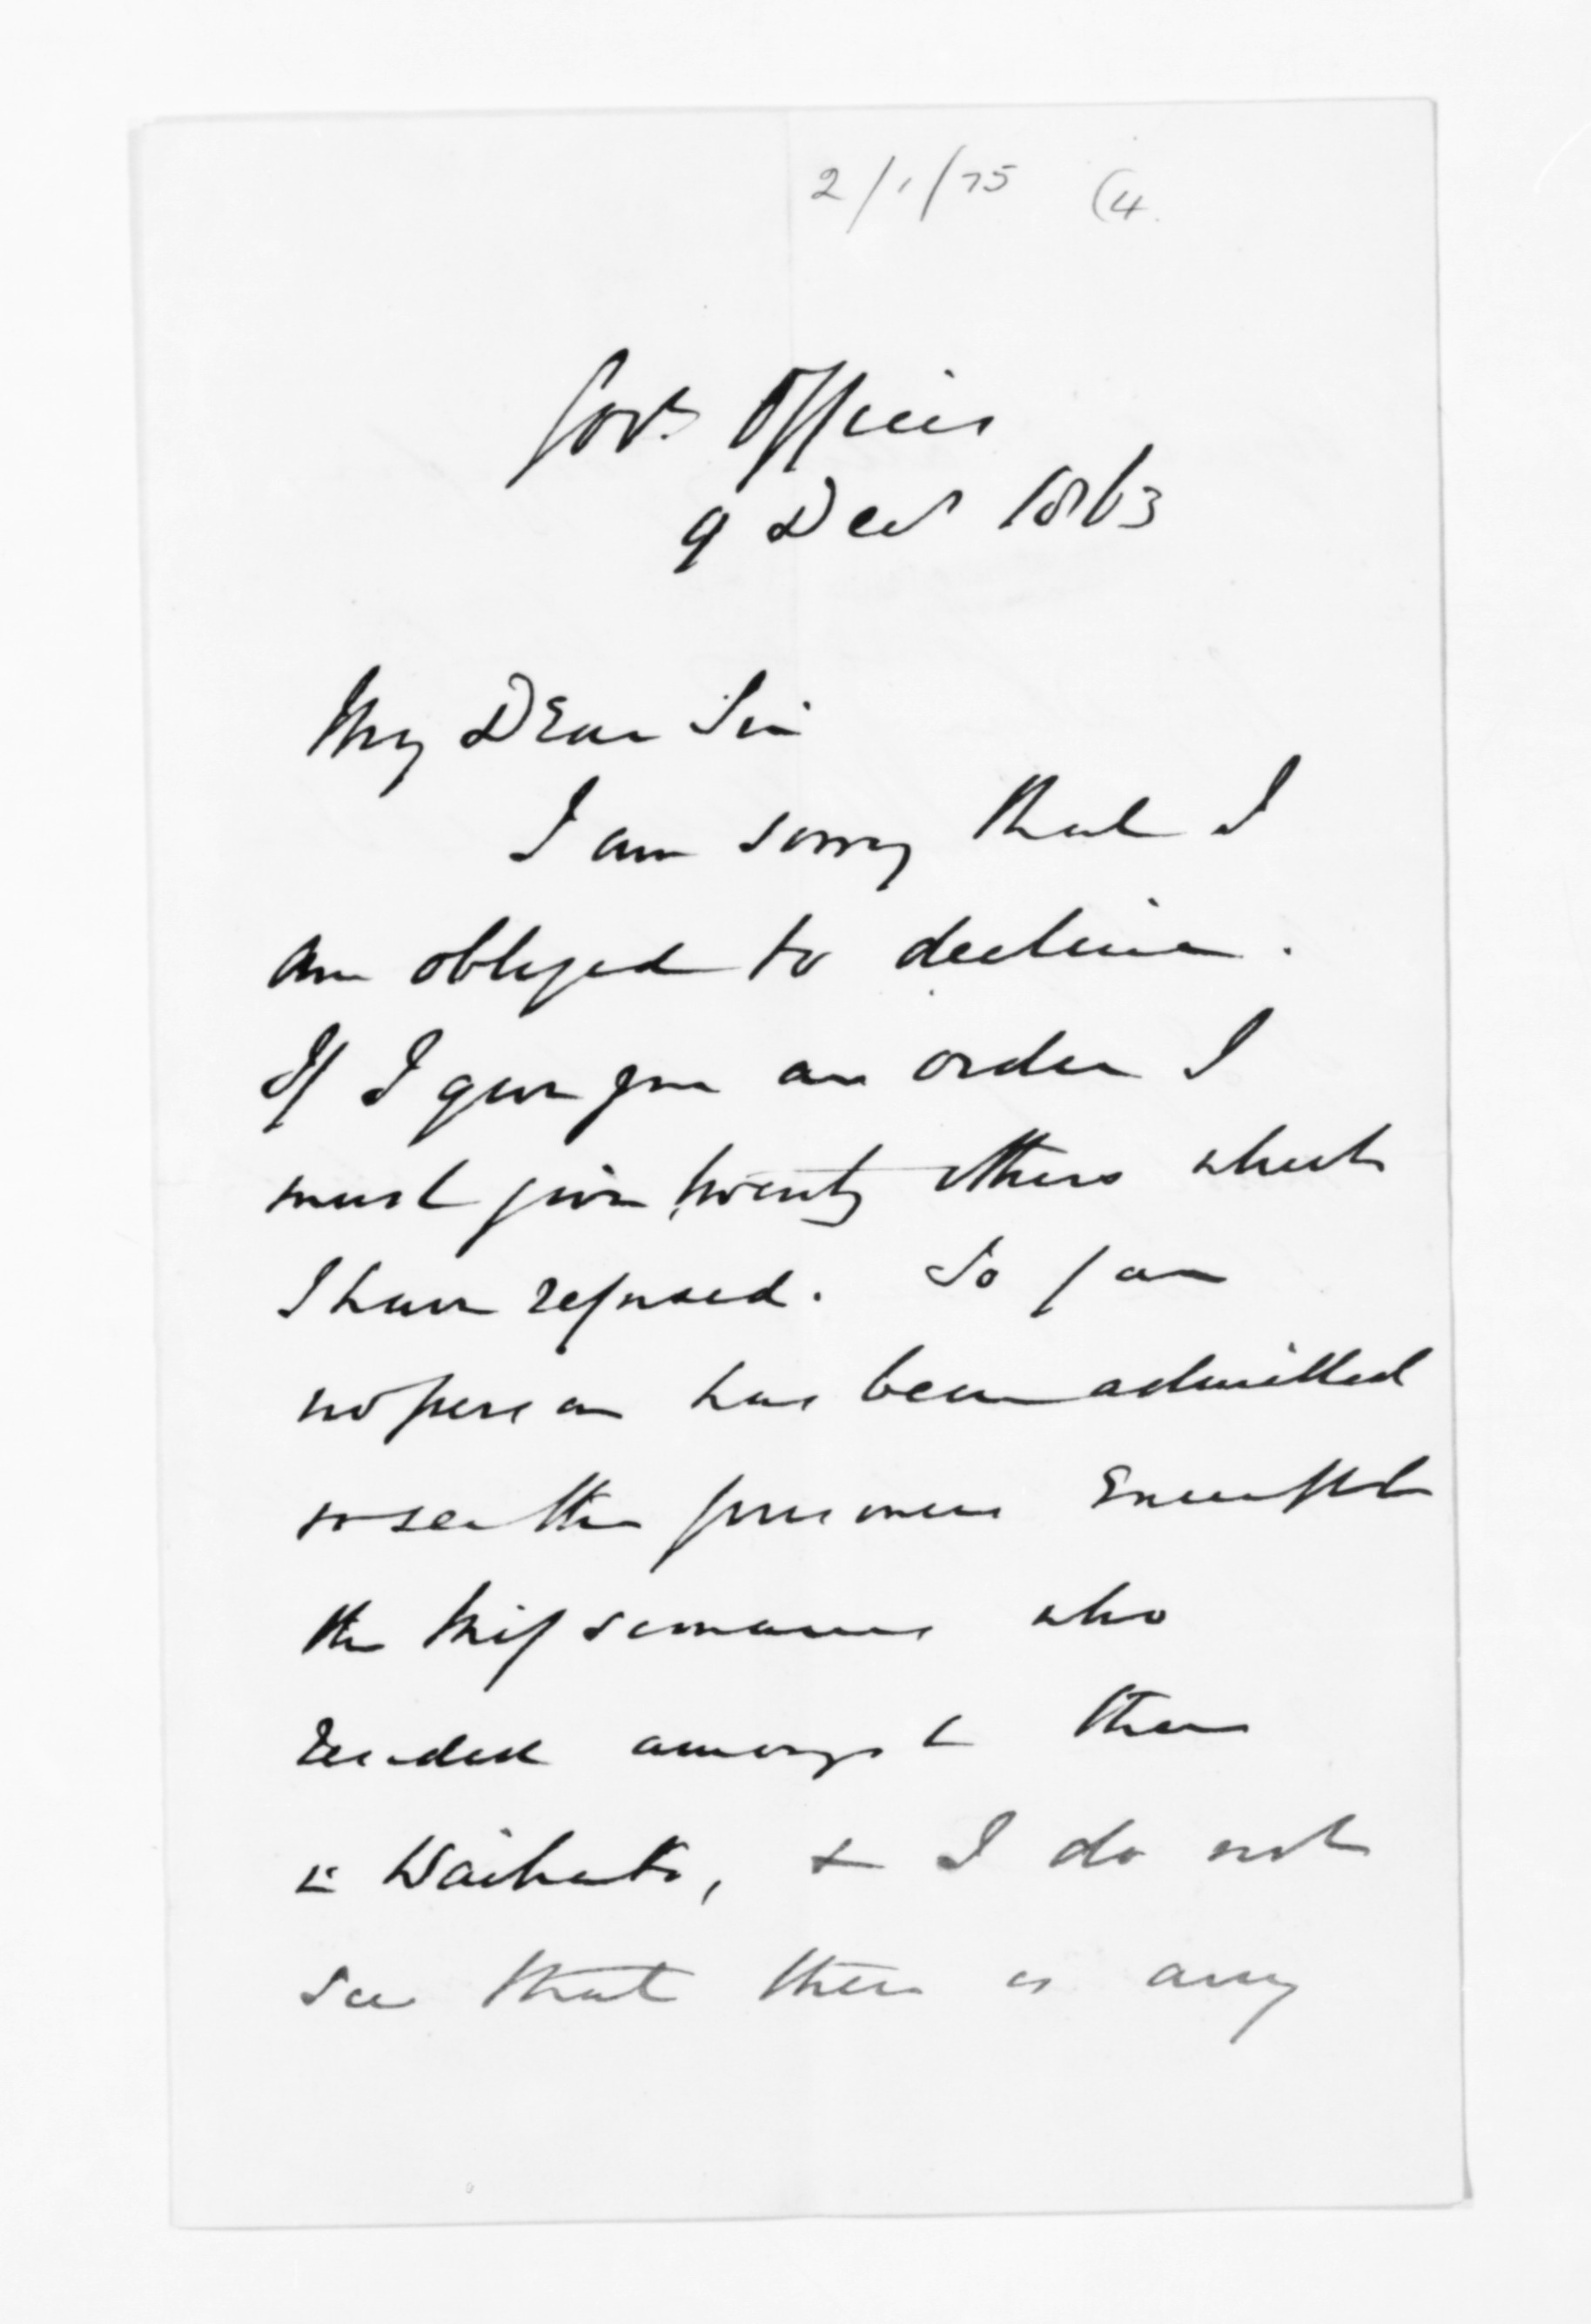 2/1/75 (4.
Govt Offices
9 Decr 1863
My Dear Sir
I am sorry that I
am obliged to decline.
If I give you an order I
must give twenty others which
I have refused. So far
no person has been admitted
to see the prisoners except
the Missionaries who
resided amongst them
in Waikato, & I do not
see that there is any